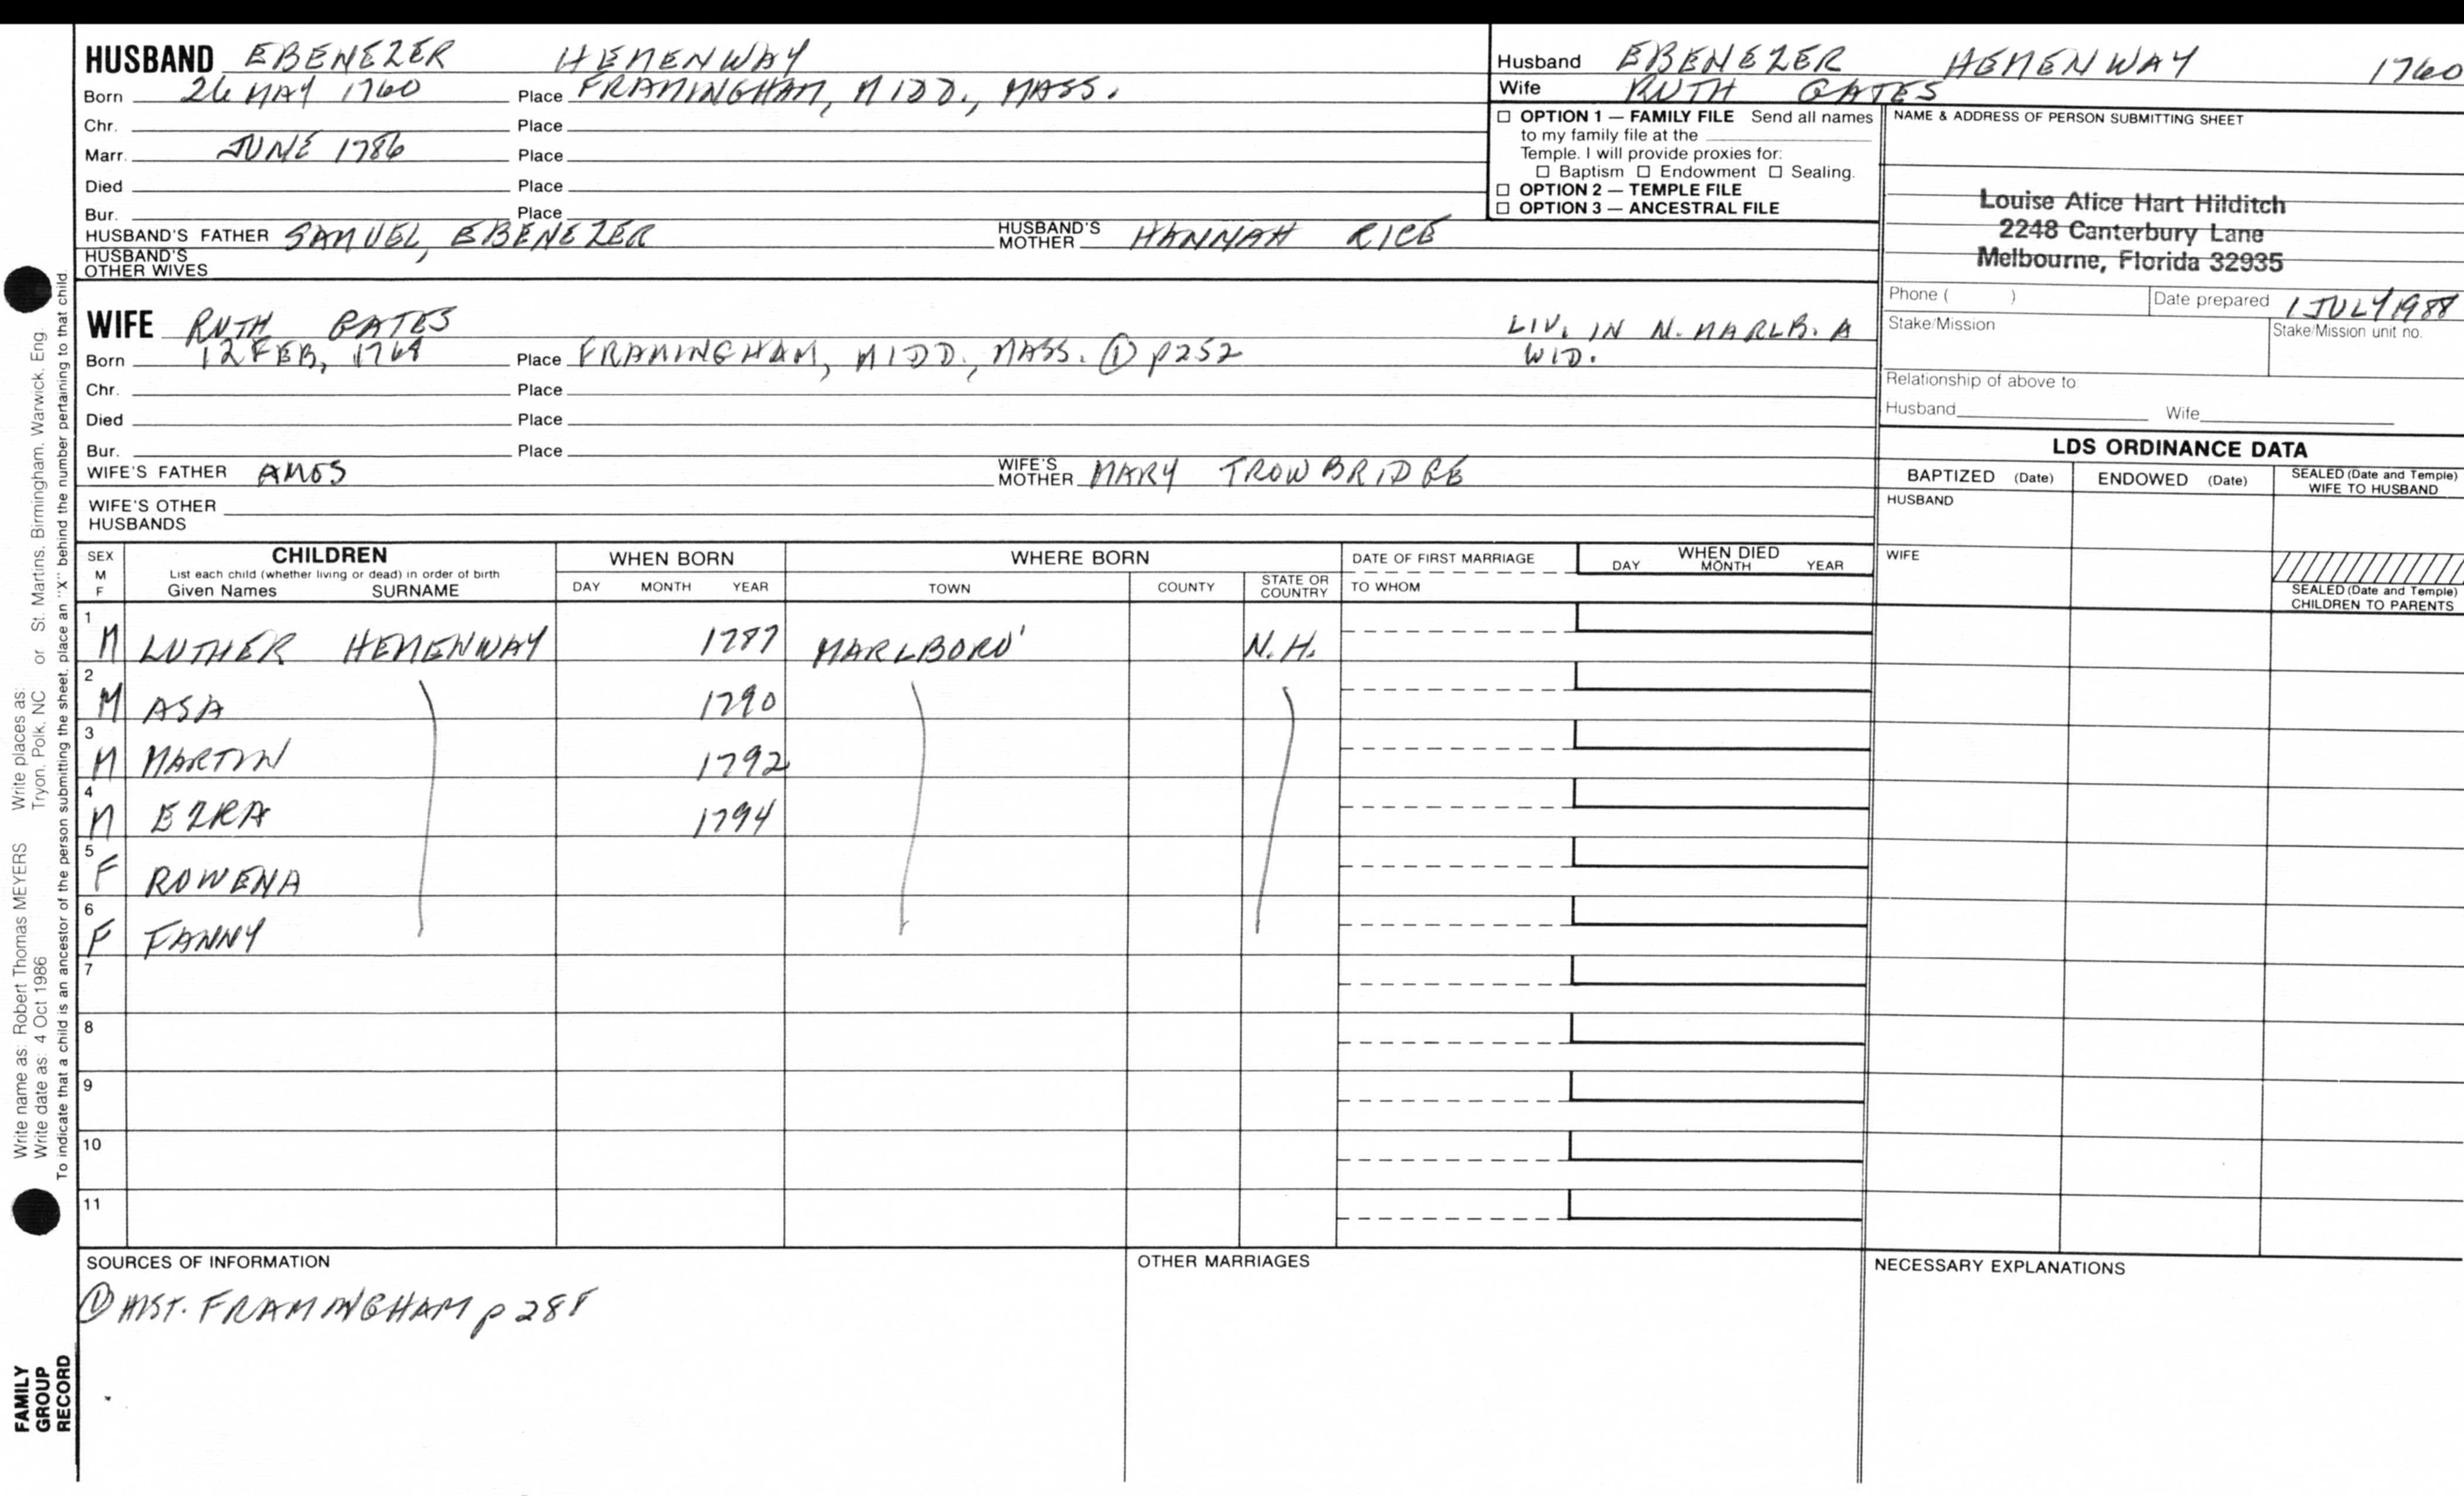 HUSBAND EBENEZER HEMENWAY
Born 26 MAY 1760 Place FRAMINGHAM, MIDD., MASS.
Chr. Place
Marr. JUNE 1786 Place
Died Place
Bur. Place
HUSBAND'S FATHER SAMUEL, EBENEZER HUSBAND'S MOTHER HANNAH RICE
HUSBAND'S OTHER WIVES
Husband EBENEZER HEMENWAY 1760
Wife RUTH GATES
☐ OPTION 1 — FAMILY FILE Send all names
to my family file at the
Temple. I will provide proxies for:
☐ Baptism ☐ Endowment ☐ Sealing.
☐ OPTION 2 — TEMPLE FILE
☐ OPTION 3 — ANCESTRAL FILE
NAME & ADDRESS OF PERSON SUBMITTING SHEET
Louise Alice Hart Hilditch
2248 Canterbury Lane
Melbourne, Florida 32935
Phone ( ) Date prepared 1 JULY 1988
Stake/Mission Stake/Mission unit no.
Relationship of above to
Husband Wife
WIFE RUTH GATES LIV. IN N. MARLB. A
Born 12 FEB, Place FRAMINGHAM, MIDD., MASS. ① p252 WID.
Chr. Place
Died Place
Bur. Place
WIFE'S FATHER AMOS WIFE'S MOTHER MARY TROWBRIDGE
WIFE'S OTHER
HUSBANDS
LDS ORDINANCE DATA
BAPTIZED (Date) ENDOWED (Date) SEALED (Date and Temple)
WIFE TO HUSBAND
HUSBAND
WIFE
SEALED (Date and Temple)
CHILDREN TO PARENTS
SEX CHILDREN WHEN BORN WHERE BORN DATE OF FIRST MARRIAGE WHEN DIED
M List each child (whether living or dead) in order of birth DAY MONTH YEAR
F Given Names SURNAME DAY MONTH YEAR TOWN COUNTY STATE OR COUNTRY TO WHOM
1 M LUTHER HEMENWAY 1787 MARLBORO' N.H.
2 M ASA 1790
3 M MARTIN 1792
4 M EZRA 1794
5 F ROWENA
6 F FANNY
7
8
9
10
11
SOURCES OF INFORMATION
① HIST. FRAMINGHAM p 288
OTHER MARRIAGES
NECESSARY EXPLANATIONS
Write name as: Robert Thomas MEYERS Write places as: Tryon, Polk, NC or St. Martins, Birmingham, Warwick, Eng.
Write date as: 4 Oct 1986
To indicate that a child is an ancestor of the person submitting the sheet, place an "X" behind the number pertaining to that child.
FAMILY
GROUP
RECORD